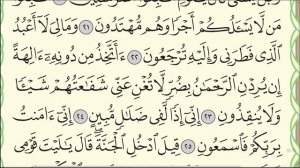 مَن لَّا يَسْـَٔلُكُمْ أَجْرًا وَهُم مُّهْتَدُونَ ٢١ وَمَالِىَ لَآ أَعْبُدُ
ٱلَّذِى فَطَرَنِى وَإِلَيْهِ تُرْجَعُونَ ٢٢ ءَأَتَّخِذُ مِن دُونِهِۦٓ ءَالِهَةً
إِن يُرِدْنِ ٱلرَّحْمَٰنُ بِضُرٍّ لَّا تُغْنِ عَنِّى شَفَٰعَتُهُمْ شَيْـًٔا
وَلَا يُنقِذُونِ ٢٣ إِنِّىٓ إِذًا لَّفِى ضَلَٰلٍ مُّبِينٍ ٢٤ إِنِّىٓ ءَامَنتُ
بِرَبِّكُمْ فَٱسْمَعُونِ ٢٥ قِيلَ ٱدْخُلِ ٱلْجَنَّةَ قَالَ يَٰلَيْتَ قَوْمِى